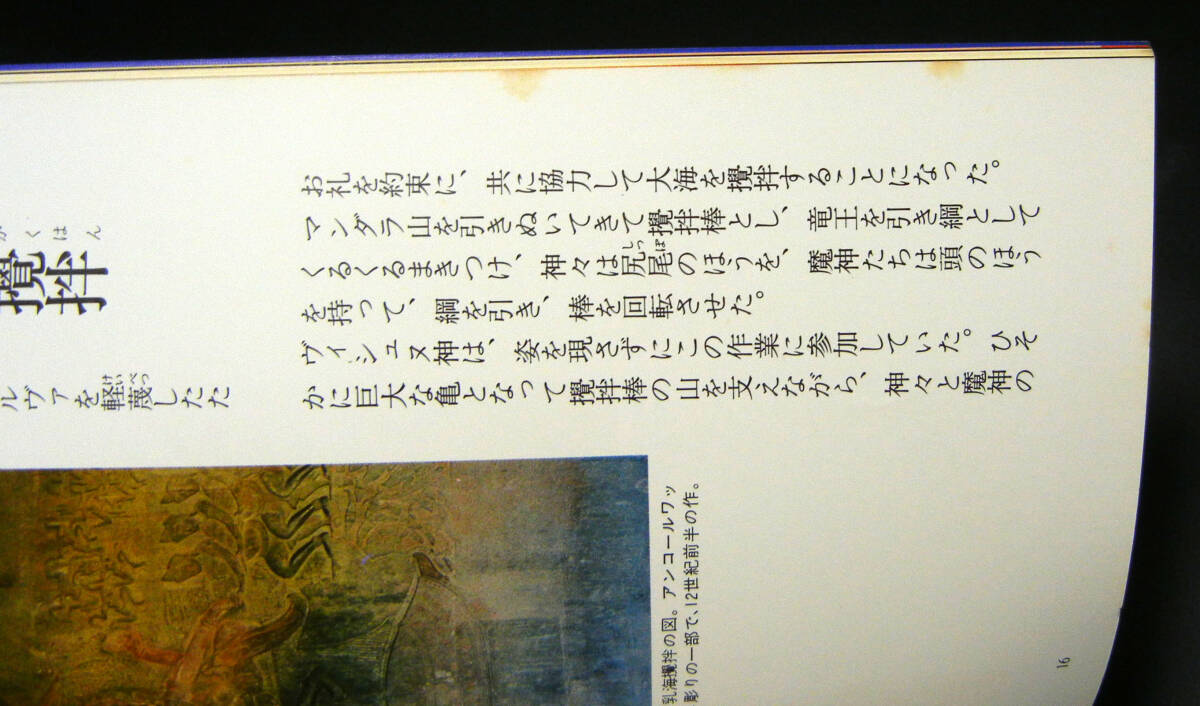 かくはん
攪拌
ルヴァを軽蔑したた
けいべつ
お礼を約束に、共に協力して大海を攪拌することになった。
マンダラ山を引きぬいてきて攪拌棒とし、竜王を引き綱として
しっぽ
くるくるまきつけ、神々は尻尾のほうを、魔神たちは頭のほう
を持って、綱を引き、棒を回転させた。
ヴィシュヌ神は、姿を現さずにこの作業に参加していた。ひそ
かに巨大な亀となって攪拌棒の山を支えながら、神々と魔神の
乳海攪拌の図。アンコールワッ
彫りの一部で、12世紀前半の作。
16